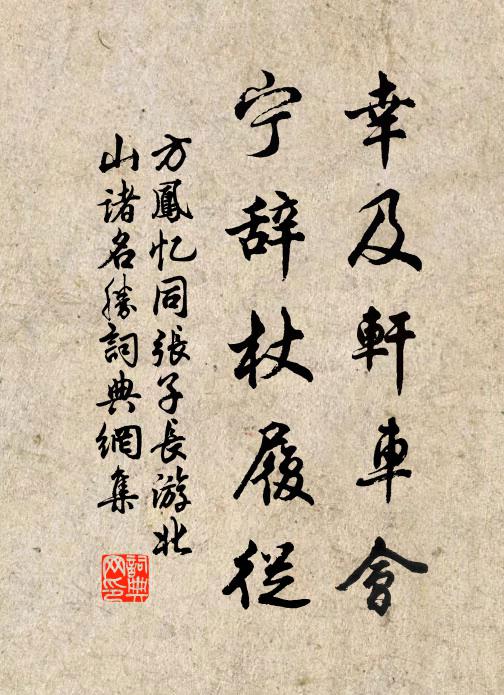 幸及軒車會
宁辞杖履從
方鳳忆同張子長游北
山諸名勝詞典網集
詞典网印